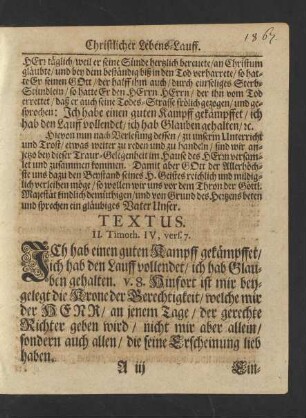 Christlicher Lebens-Lauff.
HErr täglich/ weil er seine Sünde hertzlich bereuete/ an Christum
gläubte/ und bey dem beständig biß in den Tod verharrete/ so hat-
te Er seinen GOtt/ der halff ihm auch/ durch einseliges Sterb-
Stündlein/ so hatte Er den HErrn HErrn/ der ihn vom Tod
errettet/ daß er auch seine Todes-Strasse frölich gezogen/ und ge-
sprochen: Ich habe einen guten Kampff gekämpffet/ ich
hab den Lauff vollendet/ ich hab Glauben gehalten/ ꝛc.
Hievon nun nach Verleihung dessen/ zu unserm Unterricht
und Trost/ etwas weiter zu reden und zu handeln/ sind wir an-
jetzo bey dieser Traur-Gelegenheit im Hause des HErrn versam-
let und zusammen kommen. Damit aber GOtt der Allerhöch-
ste uns dazu den Beystand seines H. Geistes reichlich und mildig-
lich verleihen möge/ so wollen wir uns vor dem Thron der Göttl.
Majestät kindlich demüthigen/ und von Grund des Hertzens beten
und sprechen ein gläubiges Vater Unser.
TEXTUS.
II. Timoth. IV, vers. 7.
ICh hab einen guten Kampff gekämpffet/
Ich hab den Lauff vollendet/ ich hab Glau-
ben gehalten. v. 8. Hinfort ist mir bey-
gelegt die Krone der Gerechtigkeit/ welche mir
der HERR/ an jenem Tage/ der gerechte
Richter geben wird/ nicht mir aber allein/
sondern auch allen/ die seine Erscheinung lieb
haben.
A iij Ein-